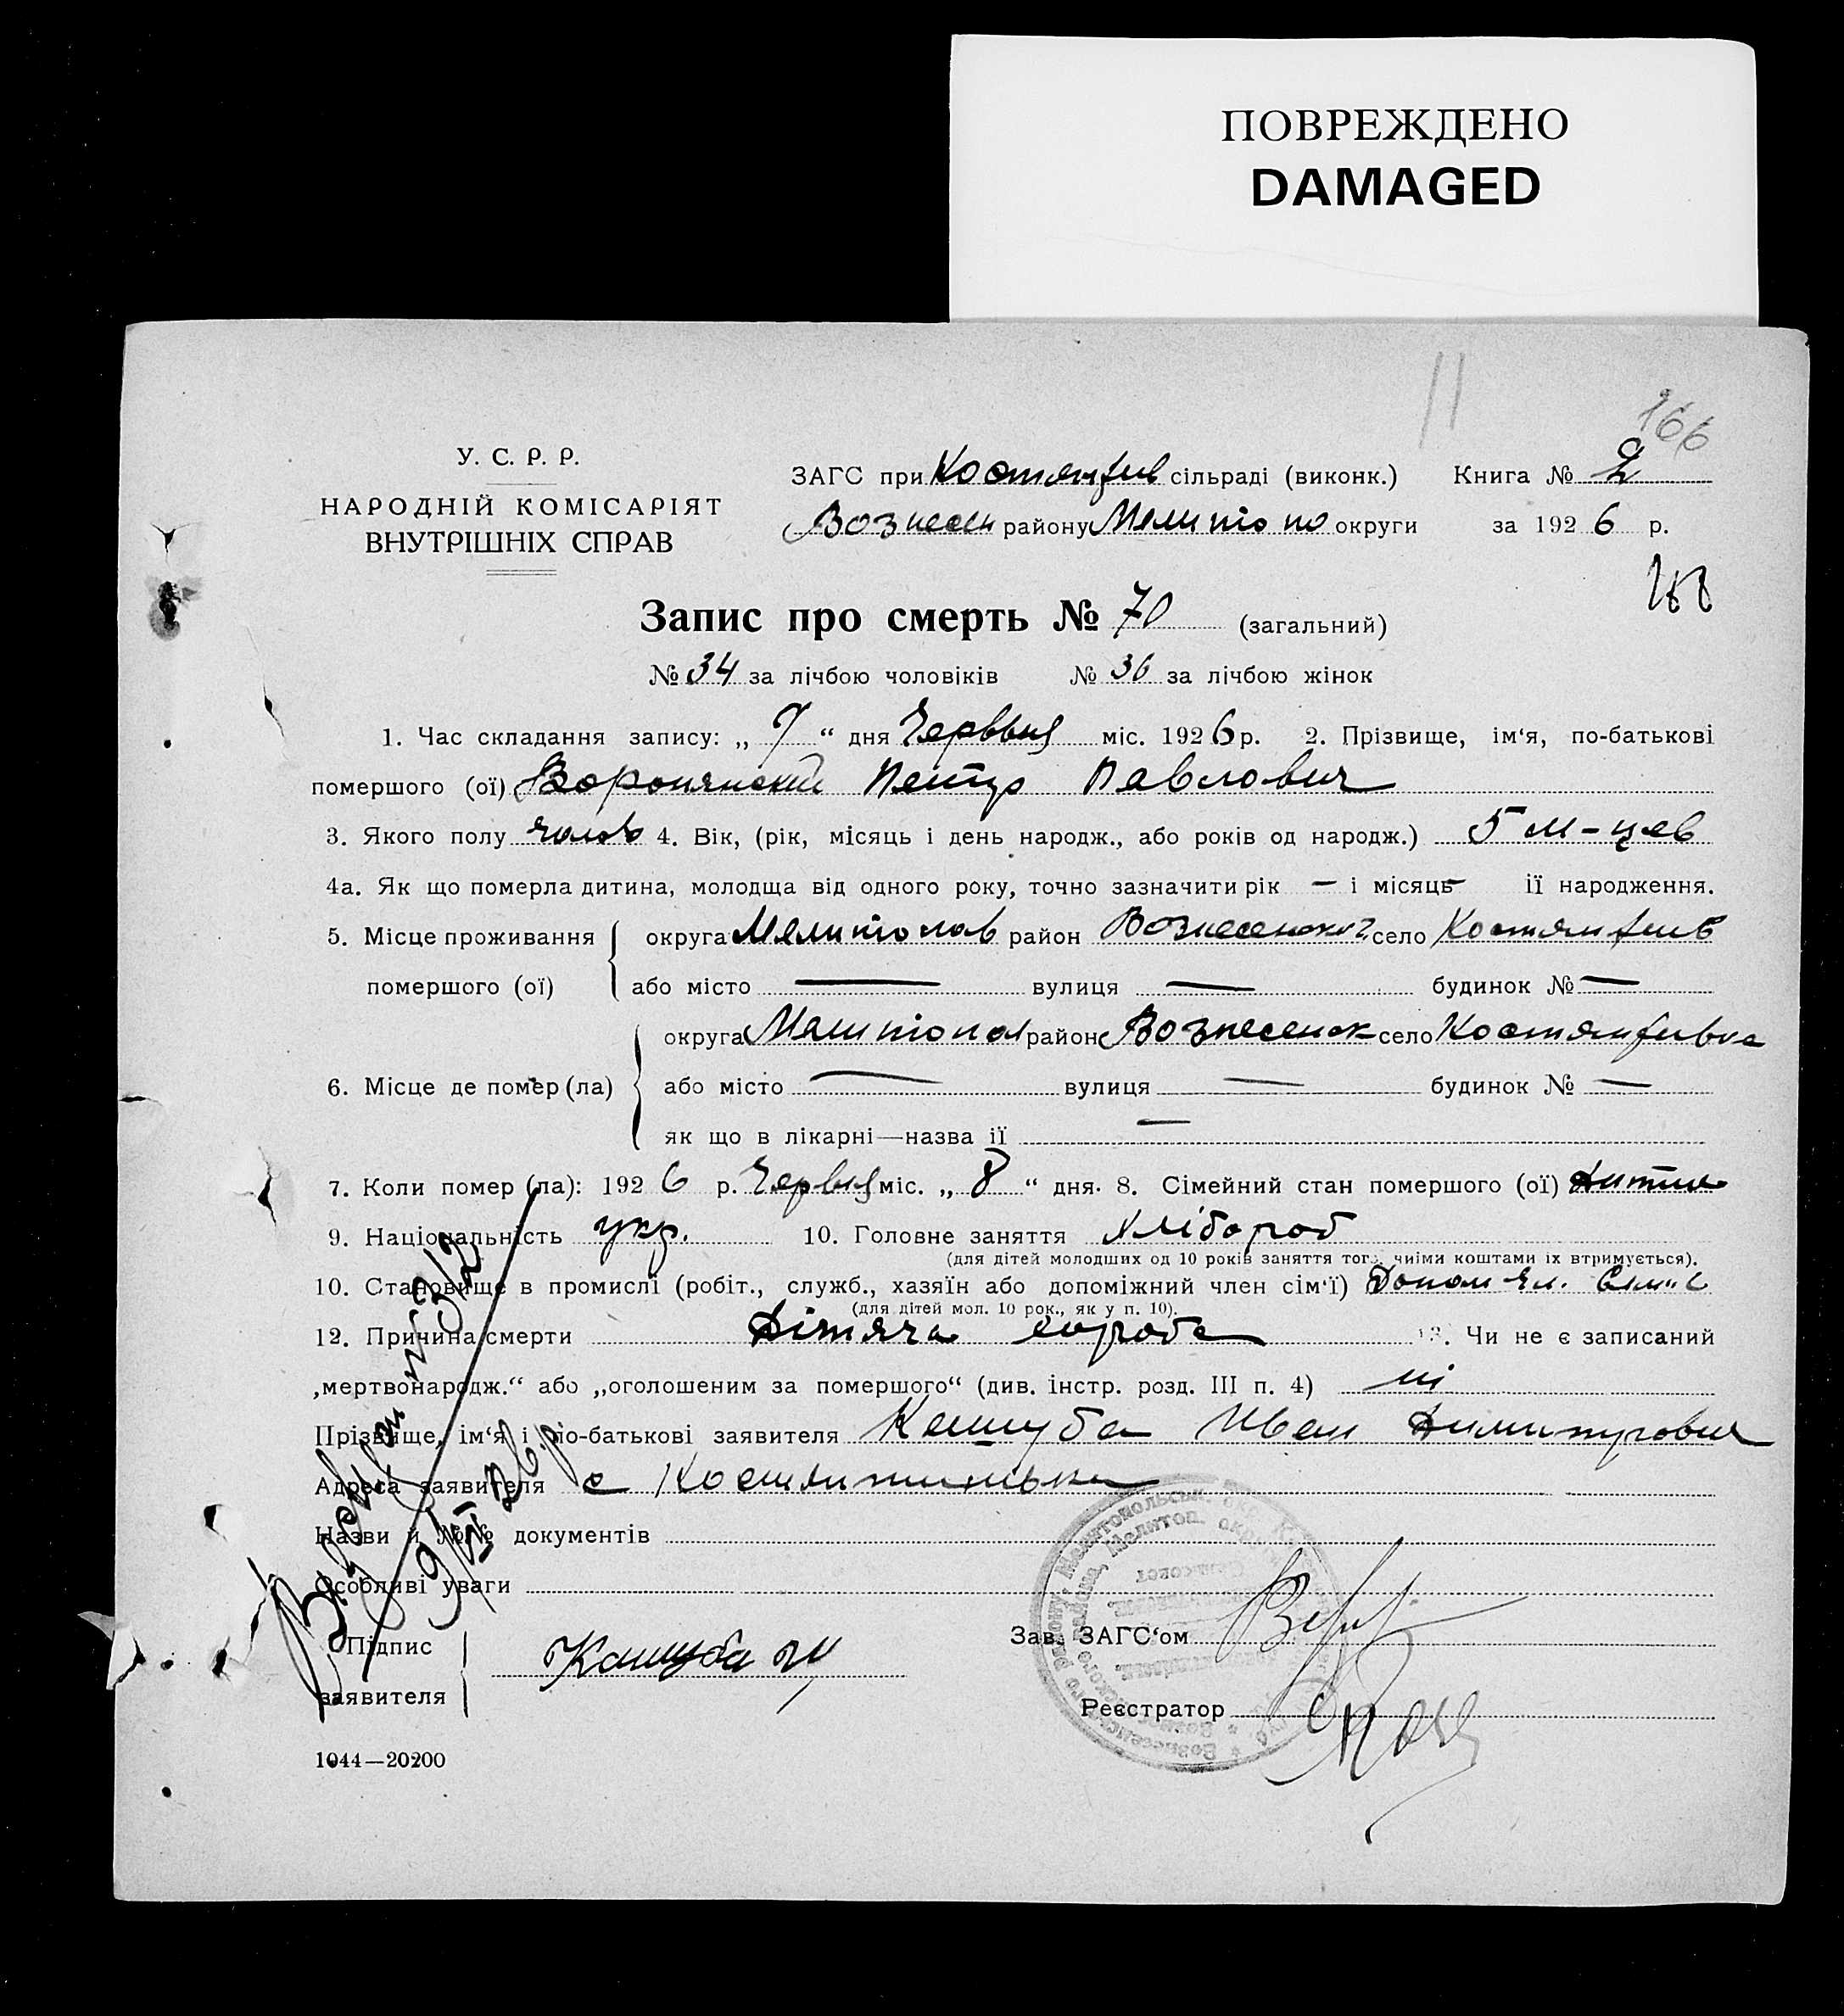 ПОВРЕЖДЕНО
DAMAGED
166
У. С. Р. Р.
НАРОДНІЙ КОМІСАРІЯТ
ВНУТРІШНІХ СПРАВ
ЗАГС при Костянтив сільраді (виконк.) Книга № 2
Вознесен району Мелитопо округи за 1926 р.
Запис про смерть № 70 (загальний)
№ 34 за лічбою чоловіків № 36 за лічбою жінок
1. Час складання запису: „ “ дня Червня міс. 1926 р. 2. Прізвище, ім‘я, по-батькові
помершого (ої) Воропянский Петро Павлович
3. Якого полу чолов 4. Вік, (рік, місяць і день народж., або років од народж.) 5 м-цев
4а. Як що померла дитина, молодща від одного року, точно зазначити рік — і місяць — її народження.
5. Місце проживання помершого (ої) округа Мелитопов район Вознесенский село Костянтив
або місто — вулиця — будинок № —
6. Місце де помер (ла) округа Мелитопол район Вознесенск село Костянтивка
або місто — вулиця — будинок № —
як що в лікарні—назва її —
7. Коли помер (ла): 1926 р. Червня міс. „ 8 “ дня. 8. Сімейний стан помершого (ої) дитина
9. Національність укр. 10. Головне заняття хлібороб
(для дітей молодших од 10 років заняття того, чиїми коштами їх втримується).
10. Становище в промислі (робіт., служб., хазяїн або допоміжний член сім‘ї) Допом чл. сім'ї
(для дітей мол. 10 рок., як у п. 10).
12. Причина смерти Дітяча хороба 13. Чи не є записаний
„мертвонародж.“ або „оголошеним за помершого“ (див. інстр. розд. III п. 4) ні
Прізвище, ім‘я і по-батькові заявителя Кашуба Иван Димитрович
Адреса заявителя с Костянтинівка
Назви й №№ документів
Особливі уваги
Підпис заявителя Кашуба И
Зав. ЗАГС‘ом
Реєстратор
1044—20200